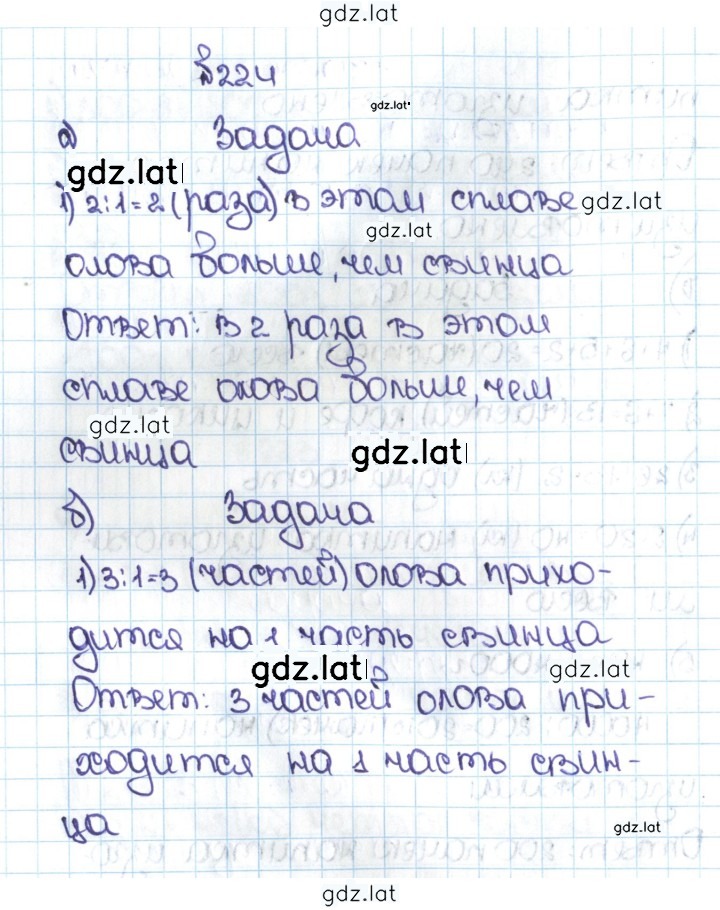 gdz.lat
№224
gdz.lat
а) Задача
gdz.lat
1) 2:1=2 (раза) в этом сплаве gdz.lat
gdz.lat
олова больше, чем свинца
Ответ: в 2 раза в этом
сплаве олова больше, чем
gdz.lat
свинца gdz.lat
б) Задача
1) 3:1=3 (частей) олова прихо-
дится на 1 часть свинца
gdz.lat gdz.lat
Ответ: 3 частей олова при-
ходится на 1 часть свин-
ца
gdz.lat
gdz.lat